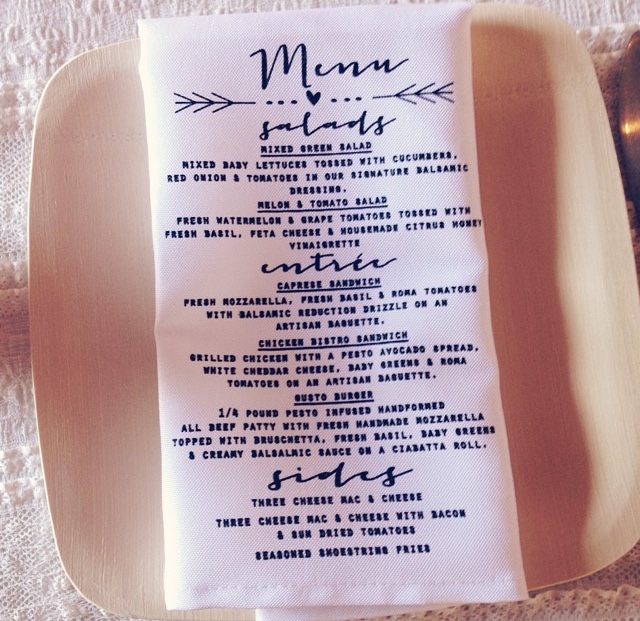 Menu
salads
MIXED GREEN SALAD
MIXED BABY LETTUCES TOSSED WITH CUCUMBERS,
RED ONION & TOMATOES IN OUR SIGNATURE BALSAMIC
DRESSING.
MELON & TOMATO SALAD
FRESH WATERMELON & GRAPE TOMATOES TOSSED WITH
FRESH BASIL, FETA CHEESE & HOUSEMADE CITRUS HONEY
VINAIGRETTE
entrée
CAPRESE SANDWICH
FRESH MOZZARELLA, FRESH BASIL & ROMA TOMATOES
WITH BALSAMIC REDUCTION DRIZZLE ON AN
ARTISAN BAGUETTE.
CHICKEN BISTRO SANDWICH
GRILLED CHICKEN WITH A PESTO AVOCADO SPREAD,
WHITE CHEDDAR CHEESE, BABY GREENS & ROMA
TOMATOES ON AN ARTISAN BAGUETTE.
GUSTO BURGER
1/4 POUND PESTO INFUSED HANDFORMED
ALL BEEF PATTY WITH FRESH HANDMADE MOZZARELLA
TOPPED WITH BRUSCHETTA, FRESH BASIL, BABY GREENS
& CREAMY BALSALMIC SAUCE ON A CIABATTA ROLL.
sides
THREE CHEESE MAC & CHEESE
THREE CHEESE MAC & CHEESE WITH BACON
& SUN DRIED TOMATOES
SEASONED SHOESTRING FRIES